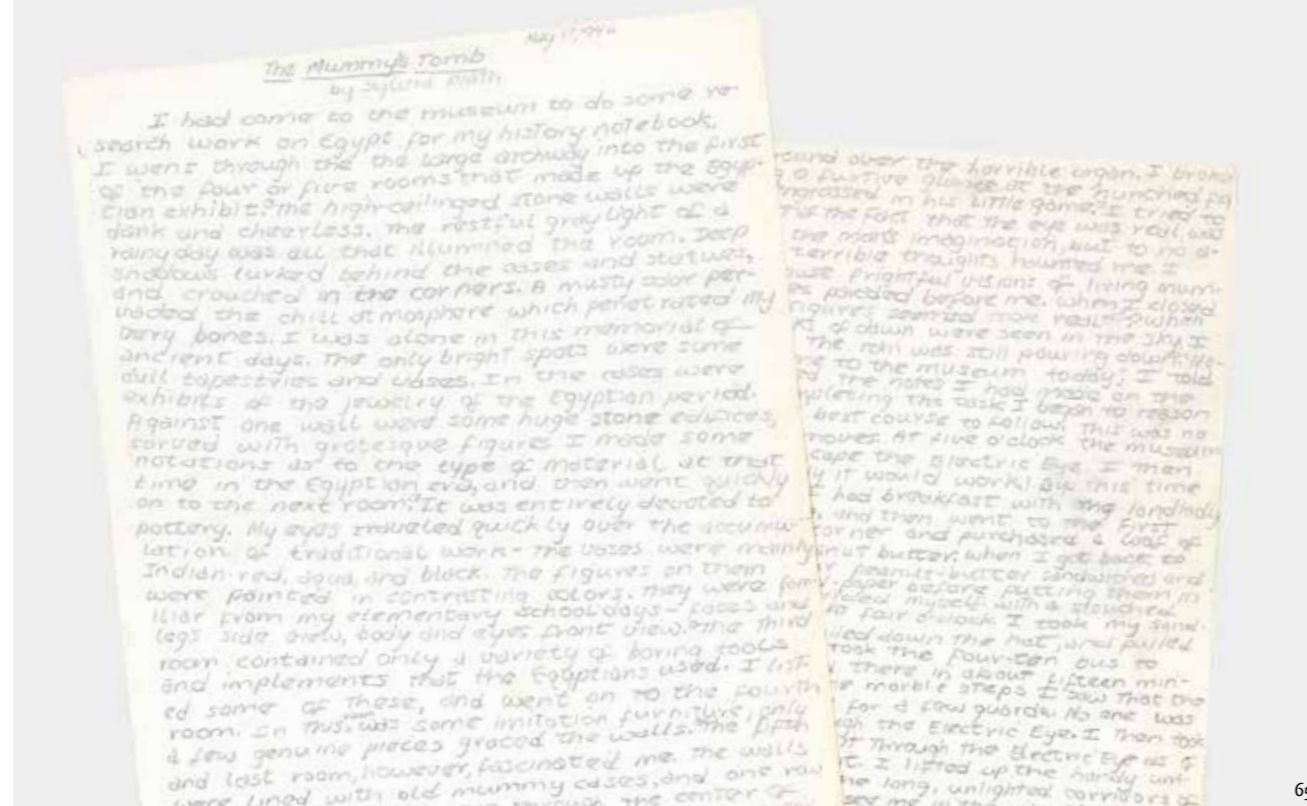 May 17, 1946
The Mummy's Tomb
by Sylvia Plath
I had come to the museum to do some re-
search work on Egypt for my history notebook.
I went through the the large archway into the first
of the four or five rooms that made up the Egyp-
tian exhibit. The high-ceilinged stone walls were
dank and cheerless. The restful gray light of a
rainy day was all that illumined the room. Deep
shadows lurked behind the cases and statues,
and crouched in the corners. A musty odor per-
vaded the chill atmosphere which penetrated my
very bones. I was alone in this memorial of
ancient days. The only bright spots were some
dull tapestries and vases. In the cases were
exhibits of the jewelry of the Egyptian period.
Against one wall were some huge stone edifices,
carved with grotesque figures I made some
notations as to the type of material at that
time in the Egyptian era, and then went quickly
on to the next room. It was entirely devoted to
pottery. My eyes traveled quickly over the accumu-
lation of traditional work - The vases were mainly
Indian-red, aqua, and black. The figures on them
were painted in contrasting colors. They were fam-
iliar from my elementary school days - faces and
legs side view, body and eyes front view. The third
room contained only a variety of boring tools
and implements that the Egyptians used. I list-
ed some of these, and went on to the fourth
room. In this was some imitation furniture, only
a few genuine pieces graced the walls. The fifth
and last room, however, fascinated me. The walls
were lined with old mummy cases, and one row
through the center of
round over the horrible organ. I broke
a furtive glance at the hunched fig
engrossed in his little game. I tried to
the fact that the eye was real, was
the man's imagination, but to no a-
terrible thoughts haunted me. I
frightful visions of living mum-
paraded before me. When I closed
figures seemed more real. When
of dawn were seen in the sky I
The rain was still pouring down.
to the museum today. I told
The notes I had made on the
completing this task I began to reason
best course to follow. This was no
moves. At five o'clock the museum
escape the Electric Eye. I then
it would work! By this time
I had breakfast with the landlady
and then went to the First
corner and purchased a loaf of
peanut butter. When I got back to
peanut-butter sandwiches and
paper before putting them in
myself with a slouched
four o'clock I took my sand-
down the hat, and pulled
took the four-ten bus to
there in about fifteen min-
marble steps I saw that the
for a few guards. No one was
the Electric Eye. I then took
through the Electric Eye as I
I lifted up the handy um-
long, unlighted corridors
see me in the